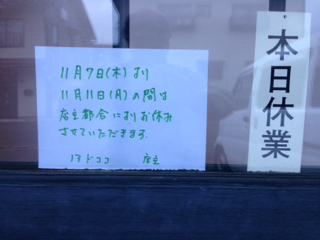 11月7日(木)より
11月11日(月)の間は
店主都合によりお休み
させていただきます。
店主
本日休業